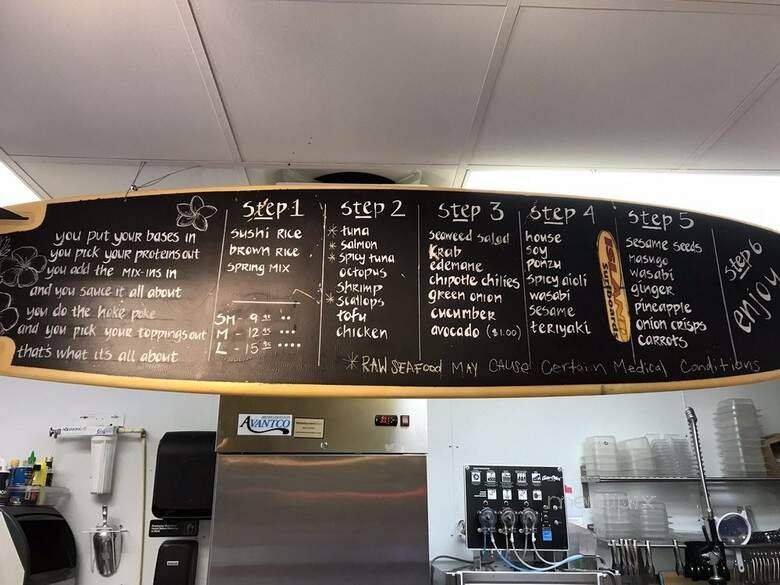 you put your bases in
you pick your proteins out
you add the mix-ins in
and you sauce it all about
you do the hoke poke
and you pick your toppings out
that's what its all about
Step 1
Sushi Rice
Brown Rice
Spring Mix
SM - 9
M - 12
L - 15
Step 2
* tuna
* salmon
* spicy tuna
octopus
shrimp
* scallops
tofu
chicken
Step 3
seaweed salad
Krab
edemame
chipotle chilies
green onion
cucumber
avocado ($1.00)
Step 4
house
soy
ponzu
spicy aioli
wasabi
sesame
teriyaki
ISLAND
Surfboards
Step 5
sesame seeds
masugo
wasabi
ginger
pineapple
onion crisps
carrots
Step 6
enjoy
* RAW SEAFood MAY CAUSE Certain Medical Conditions
AVANTCO